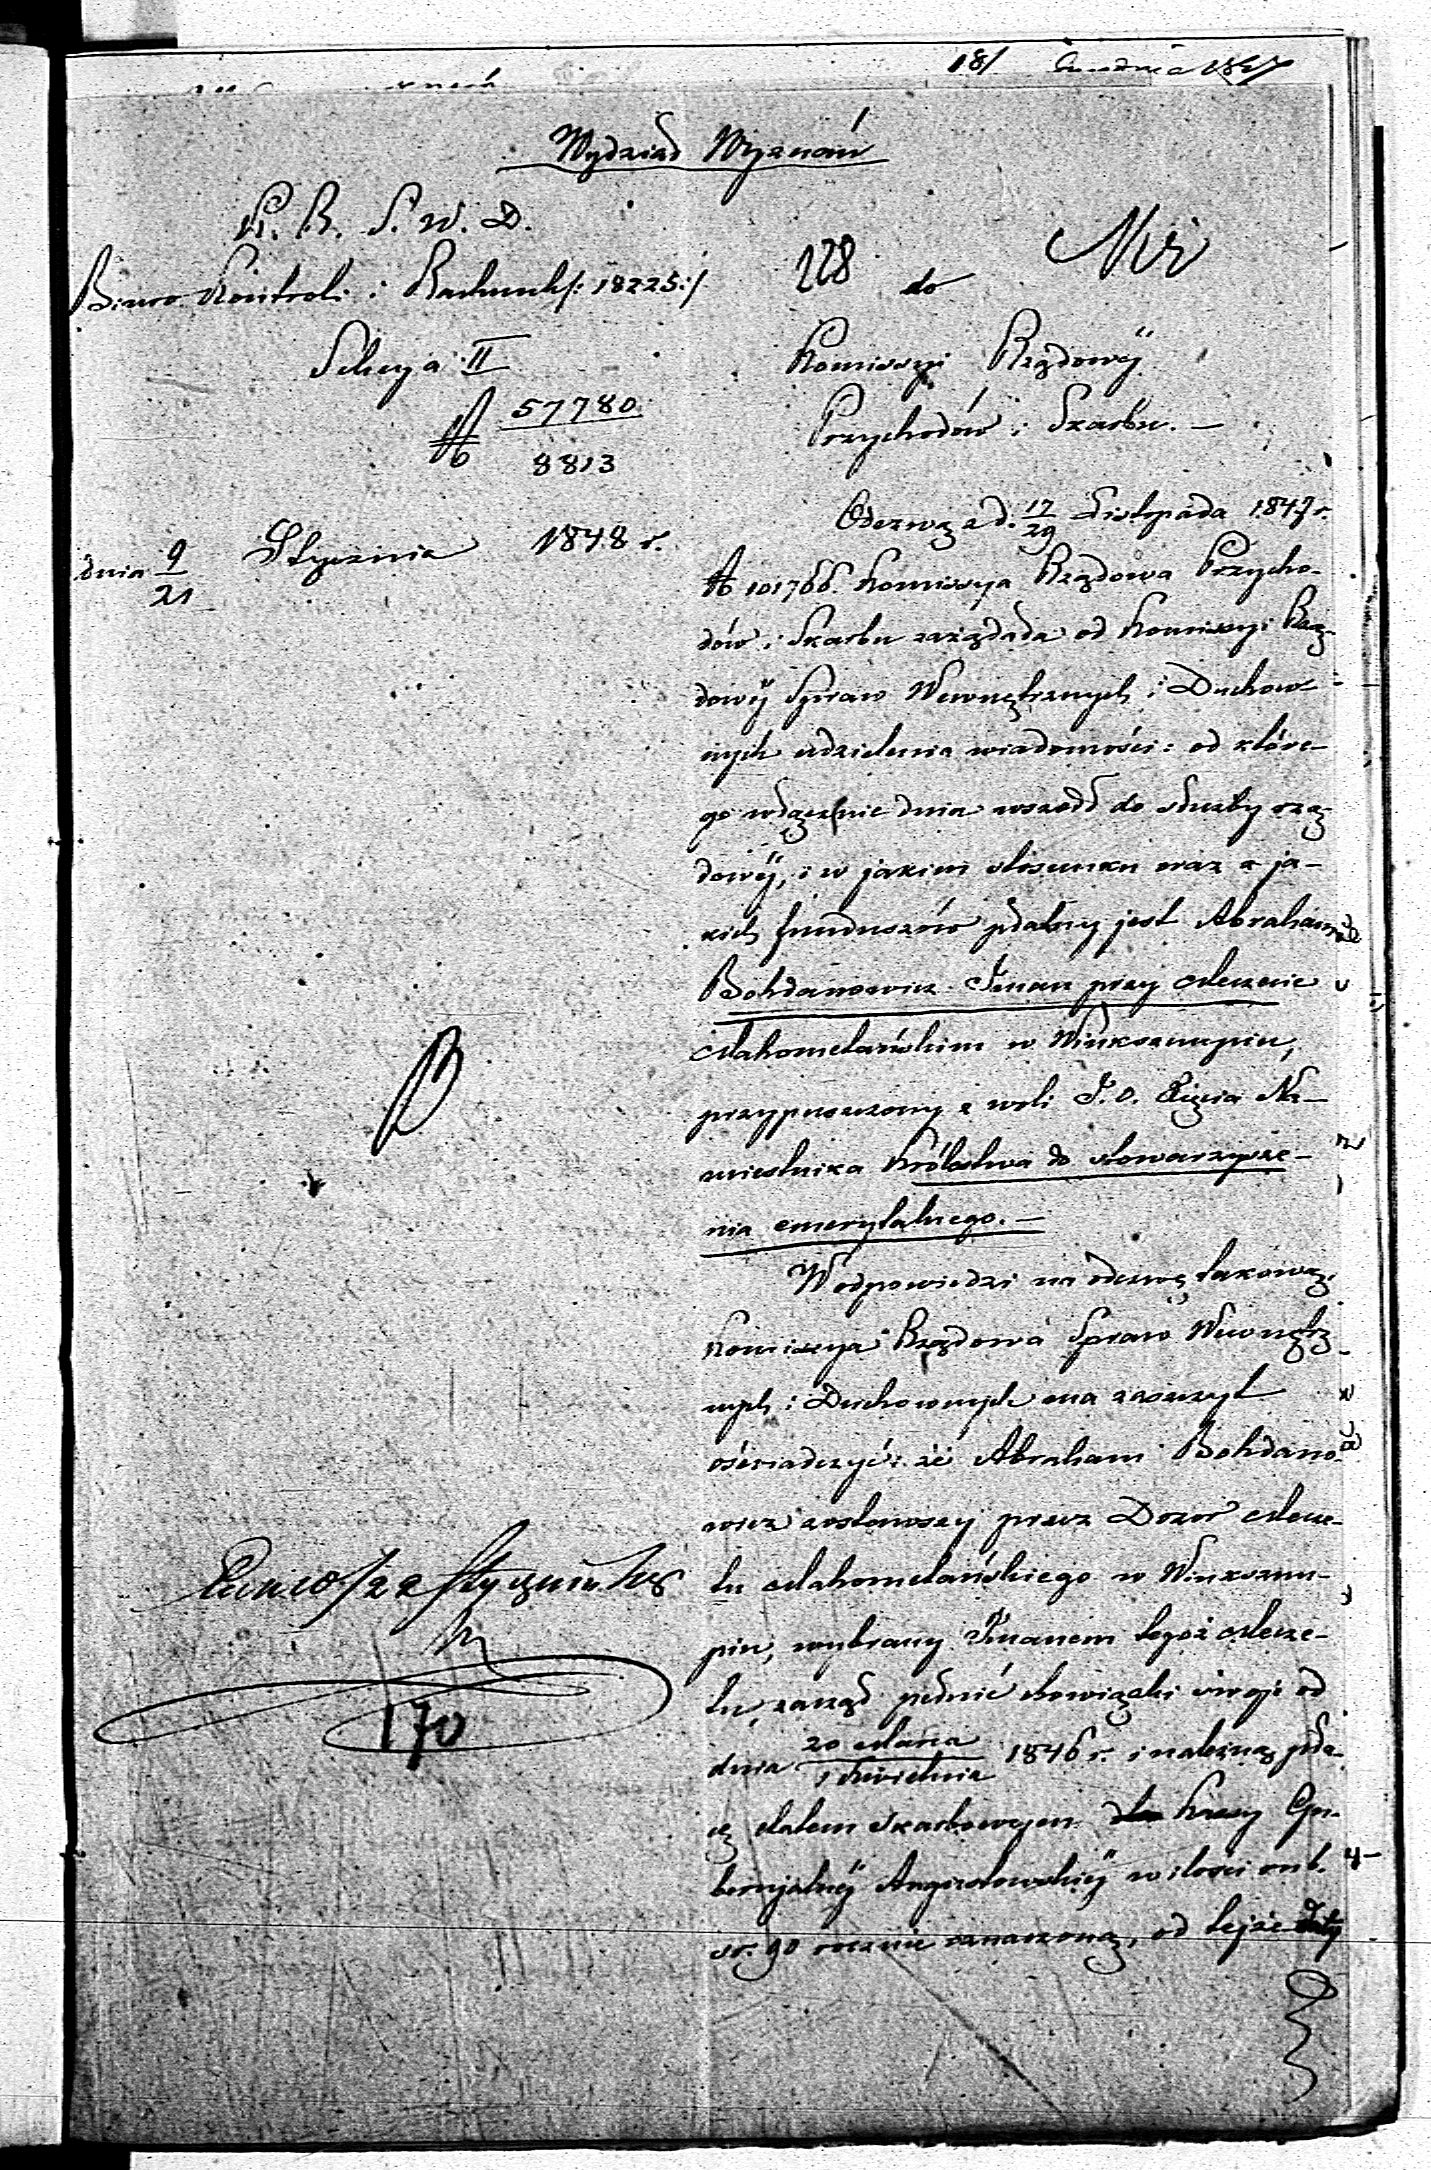 18/ Grudnia 1847
Wydział Wyznań
K. R. S. W. D.
Biuro Kontroli i Rachunk /: 18225 :/
Sekcya II
№ 57780
8813
dnia 9/21 Stycznia 1848 r.
128 do
Kommissyi Rządowéy
Przychodów i Skarbu. —
Odezwą z d. 17/29 Listopada 1847 r.
№ 101766. Kommissya Rządowa Przycho-
dów i Skarbu zażądała od Kommissyi Rzą-
dowéy Spraw Wewnętrznych i Duchow-
nych udzielenia wiadomości: od które-
go włącznie dnia wszedł do służby rzą-
dowéy, i w jakim stosunku oraz z ja-
kich funduszów płatny jest Abraham
Bohdanowicz Iman przy Meczecie
Mahometańskim w Winksznupiu,
przypuszczony z woli J. O. Xięcia Na-
miestnika Królestwa do stowarzysze-
nia emerytalnego. —
W odpowiedzi na odezwę takową,
Kommissya Rządowa Spraw Wewnętrz-
nych i Duchownych ma zaszczyt
oświadczyć: że Abraham Bohdano-
wicz zostawszy przez Dozór Mecze-
tu Mahometańskiego w Winksznu-
piu, wybrany Imanem tegoż Mecze-
tu, zaczął pełnić obowiązki swoje od
dnia 20 Marca / 1 Kwietnia 1846 r. i należną pła-
cę etatem Skarbowym dla Kassy Gu-
bernjalnéy Augustowskiéy w ilości rub.
sr. 90 rocznie oznaczoną, od tejże daty
170